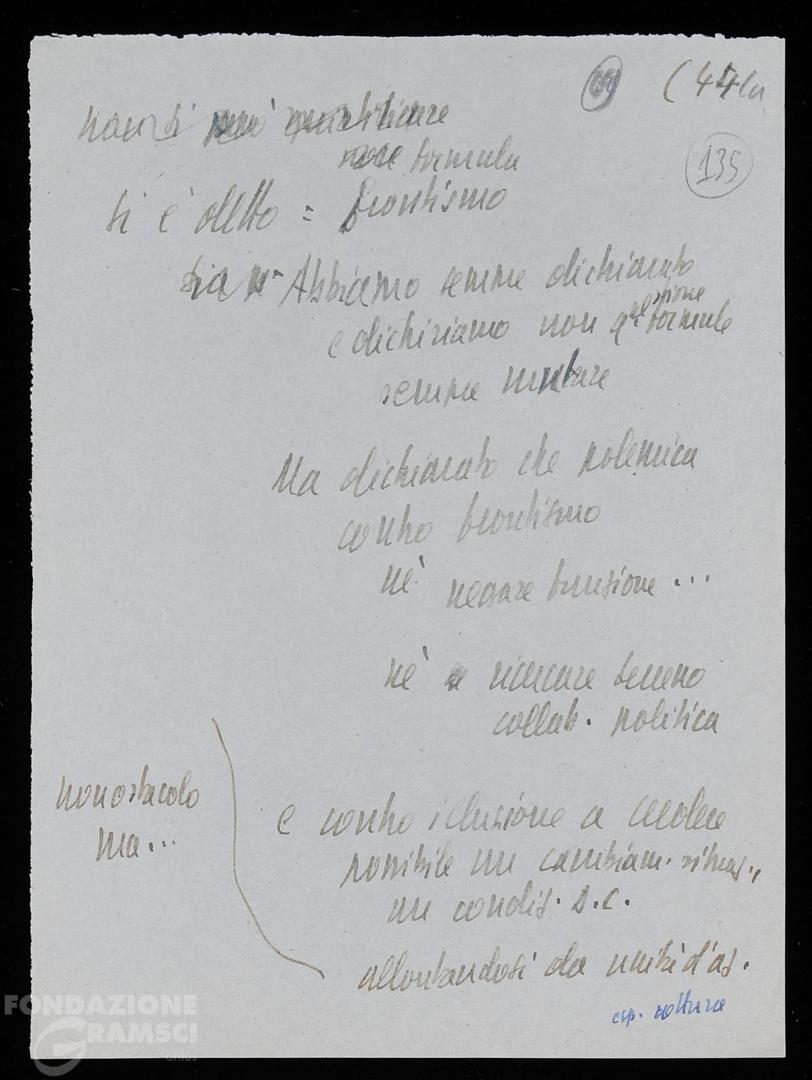 (44
135
non si può
formula
si è detto = frontismo
sia Abbiamo sempre dichiarato
e dichiriamo non qestione
formule
sempre mutare
Ma dichiarato che polemica
contro frontismo
nè negare funzione ...
nè ricercare terreno
collab. politica
non ostacolo
ma...
e contro illusione a credere
possibile un cambiam. situaz.,
un condiz. D.C.
allontandosi da unità d'az.
esp. rottura
FONDAZIONE
GRAMSCI
onlus